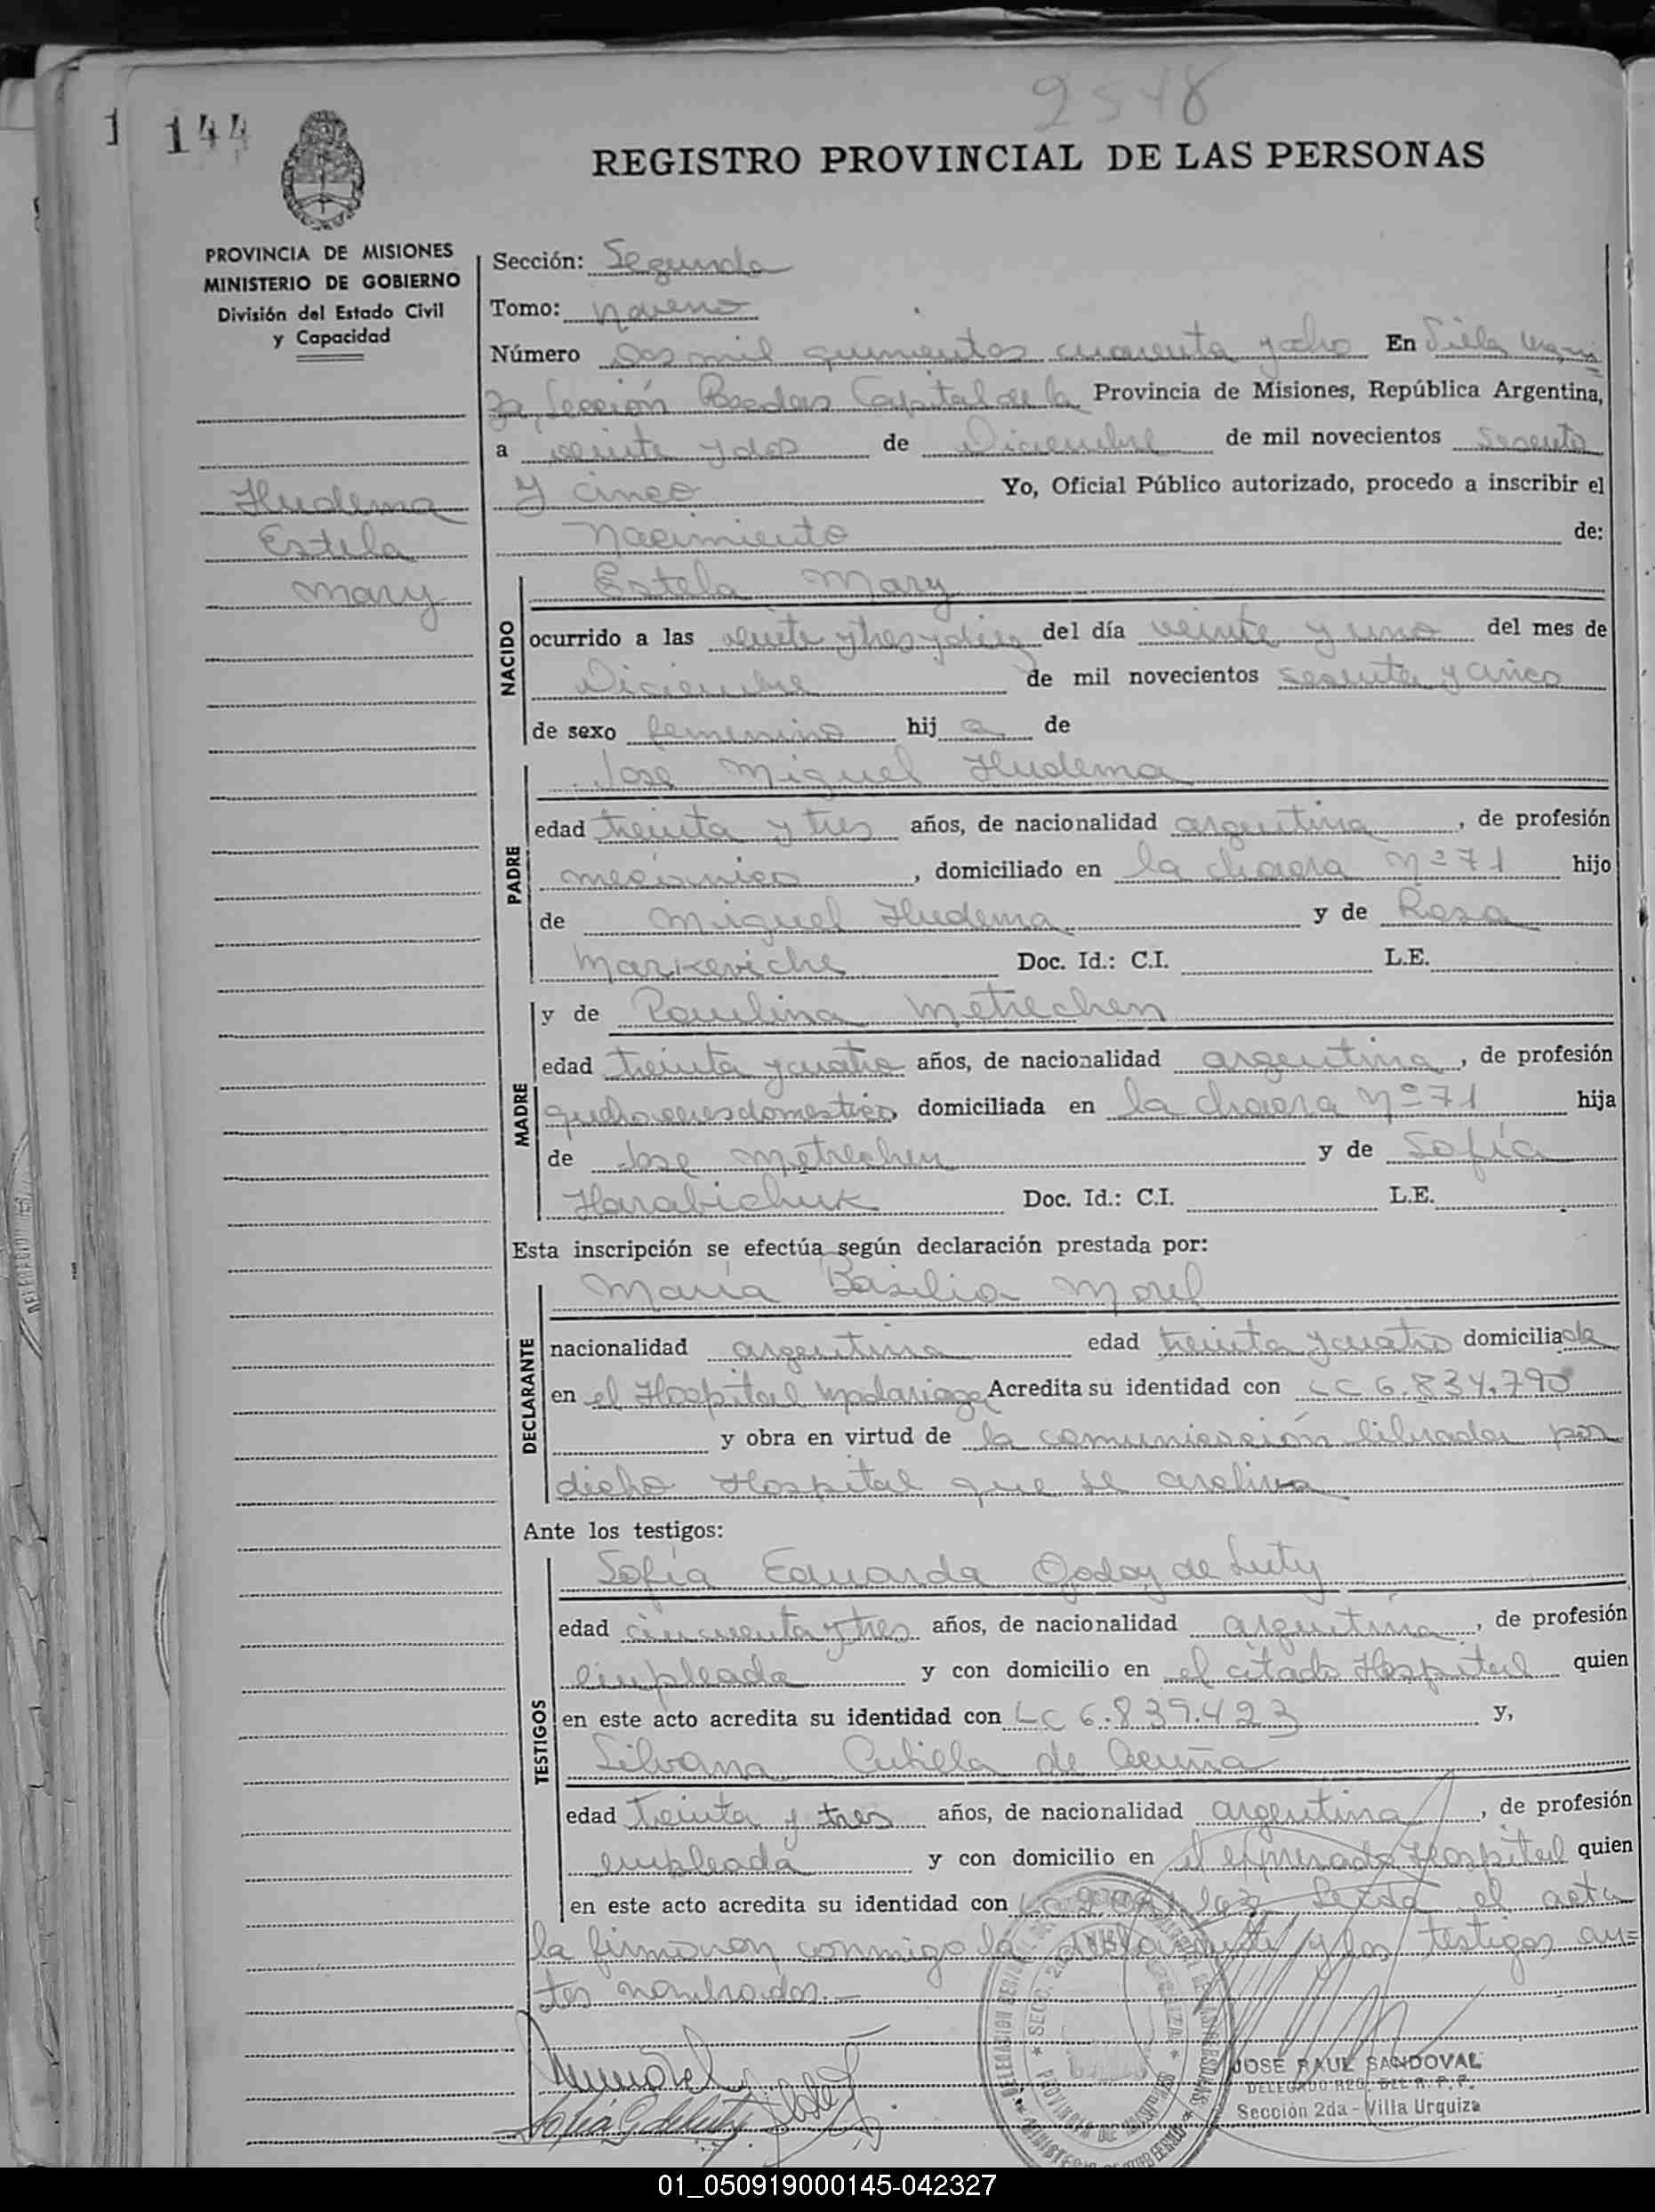 2548
1 144
REGISTRO PROVINCIAL DE LAS PERSONAS
PROVINCIA DE MISIONES
MINISTERIO DE GOBIERNO
División del Estado Civil
y Capacidad
Hudema
Estela
Mary
Sección: Segunda
Tomo: Noveno
Número Dos mil quinientos cuarenta y ocho En Villa Urqui
za, Sección Posadas Capital de la Provincia de Misiones, República Argentina,
a veinte y dos de Diciembre de mil novecientos sesenta
y cinco Yo, Oficial Público autorizado, procedo a inscribir el
Nacimiento de:
NACIDO
Estela Mary
ocurrido a las veinte y tres y diez del día veinte y uno del mes de
Diciembre de mil novecientos sesenta y cinco
de sexo femenino hij a de
PADRE
José Miguel Hudema
edad treinta y tres años, de nacionalidad argentina, de profesión
mecánico, domiciliado en la chacra Nº 71 hijo
de Miguel Hudema y de Rosa
Markeviche Doc. Id.: C.I. L.E.
MADRE
y de Paulina Metrechen
edad treinta y cuatro años, de nacionalidad argentina, de profesión
quehaceres domestico domiciliada en la chacra Nº 71 hija
de José Metrechen y de Sofía
Harabichuk Doc. Id.: C.I. L.E.
Esta inscripción se efectúa según declaración prestada por:
DECLARANTE
María Basilia Morel
nacionalidad argentina edad treinta y cuatro domiciliada
en el Hospital Madariaga Acredita su identidad con LC 6.834.790
y obra en virtud de la comunicación librada por
dicho Hospital que se archiva
Ante los testigos:
TESTIGOS
Sofía Eduarda Godoy de Luty
edad cincuenta y tres años, de nacionalidad argentina, de profesión
empleada y con domicilio en el citado Hospital quien
en este acto acredita su identidad con LC 6.839.423 y,
Silvana Cubilla de Acuña
edad treinta y tres años, de nacionalidad argentina, de profesión
empleada y con domicilio en el expresado Hospital quien
en este acto acredita su identidad con Leída el acta
la firmaron conmigo la declarante y los testigos an=
tes nombrados.—
JOSE RAUL SANDOVAL
DELEGADO REG. DEL R. P. P.
Sección 2da - Villa Urquiza
01_050919000145-042327